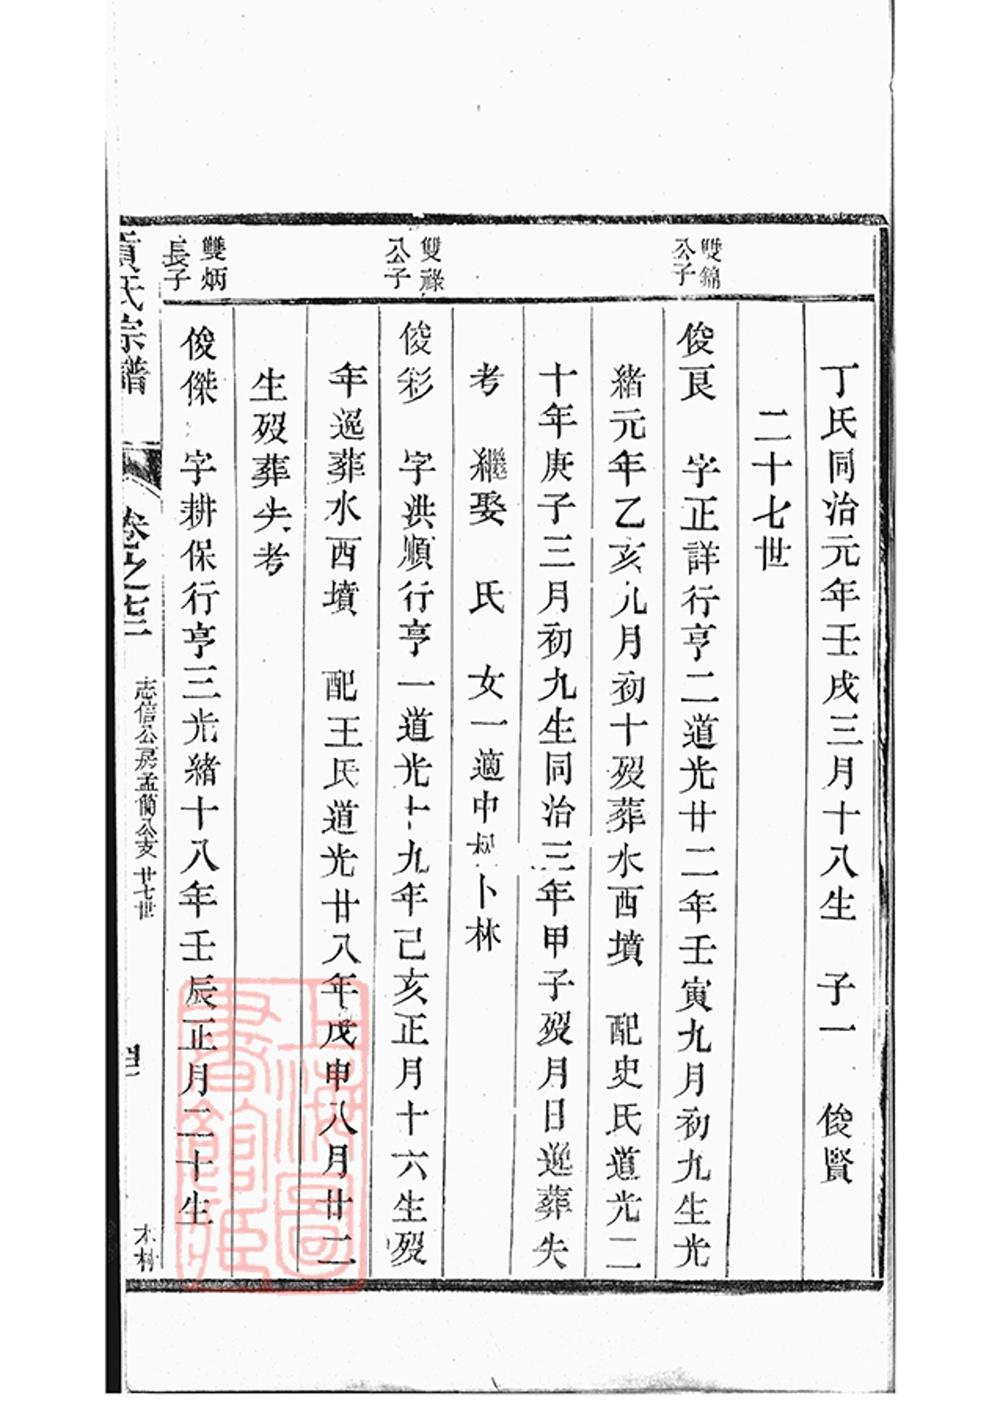 丁氏同治元年壬戌三月十八生　子一　俊賢
二十七世
雙錦
公子
俊良　字正詳行亨二道光廿二年壬寅九月初九生光
緒元年乙亥九月初十歿葬水西墳　配史氏道光二
十年庚子三月初九生同治三年甲子歿月日逸葬失
考　繼娶　氏　女一適中　卜林
雙祿
公子
俊彩　字洪順行亨一道光十九年己亥正月十六生歿
年逸葬水西墳　配王氏道光廿八年戊申八月廿二
生歿葬失考
雙炳
長子
俊傑　字耕保行亨三光緒十八年壬辰正月二十生
氏宗譜
卷之
志信公房孟簡公支　廿七世
木村
上海圖
書館藏